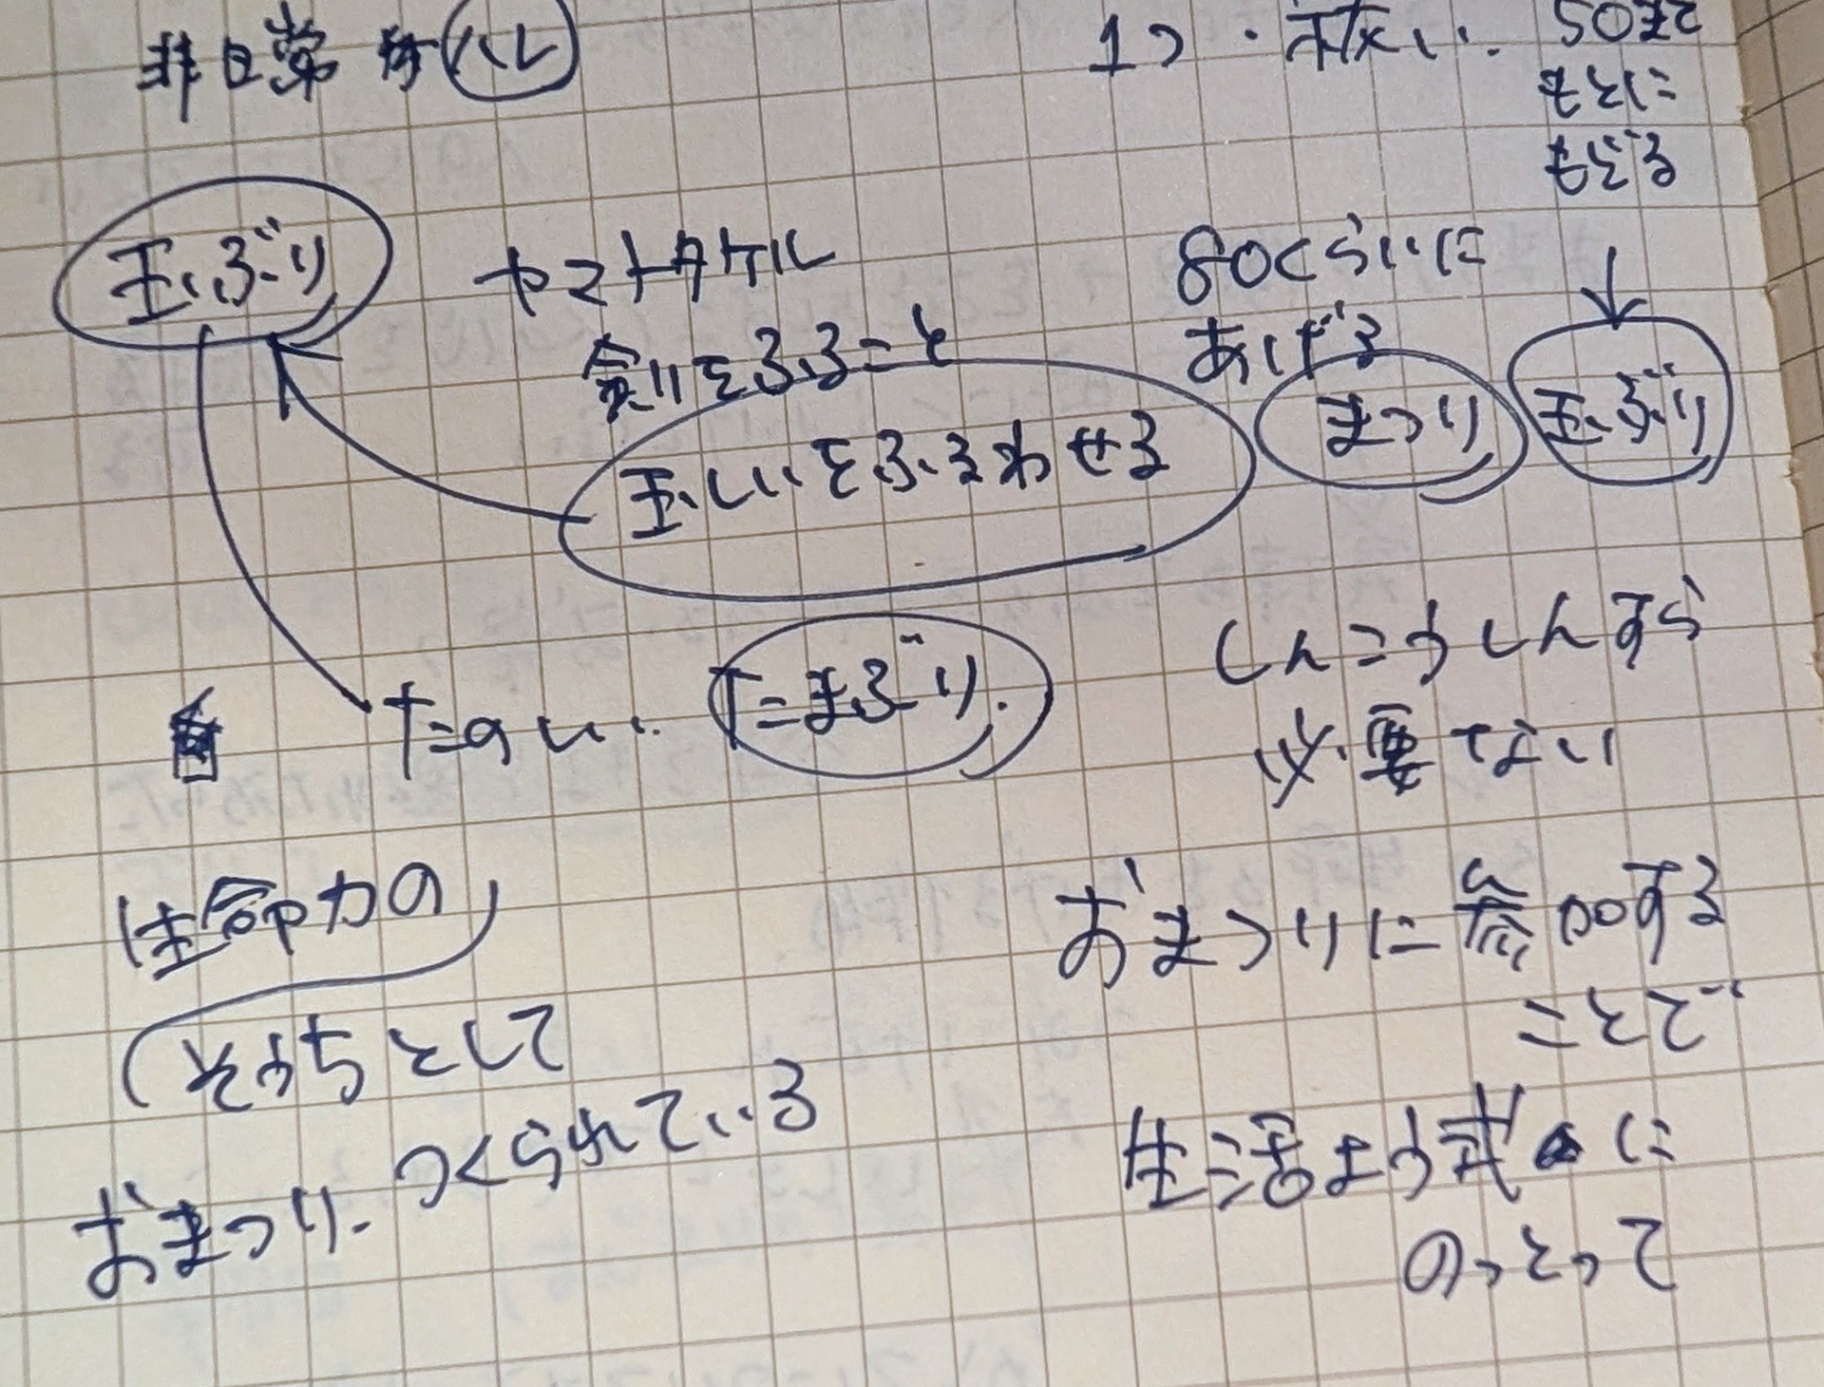 非日常 ハレ
玉ぶり
ヤマトタケル
をふること
玉しいをふるわせる
たのしい たまぶり.
生命力の
そうちとして
つくられている
おまつり
1つ・祓い
50まで
もとに
もどる
80くらいに
あげる
まつり
玉ぶり
しんこうしんすら
必要でない
おまつりに参加する
ことで
生活よう式に
のっとって